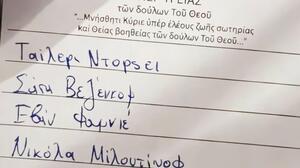 τῶν δούλων Τοῦ Θεοῦ
"...Μνήσθητι Κύριε ὑπέρ ἐλέους ζωῆς σωτηρίας
καί Θείας βοηθείας τῶν δούλων Τοῦ Θεοῦ..."
Ταίλερ Ντορσεϊ
Σάσα Βεζένκοφ
Εβάν Φουρνιέ
Νικόλα Μιλουτίνοφ